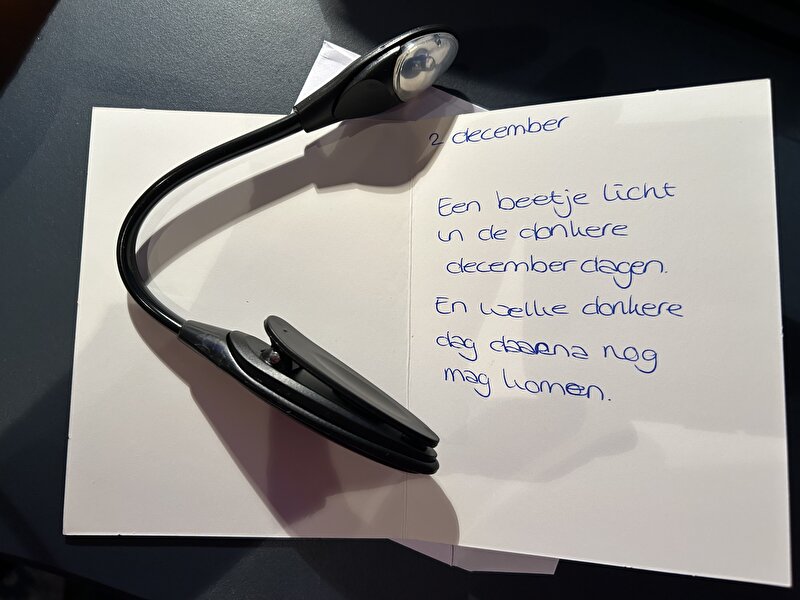 2 december
Een beetje licht
in de donkere
december dagen.
En welke donkere
dag daarna nog
mag komen.